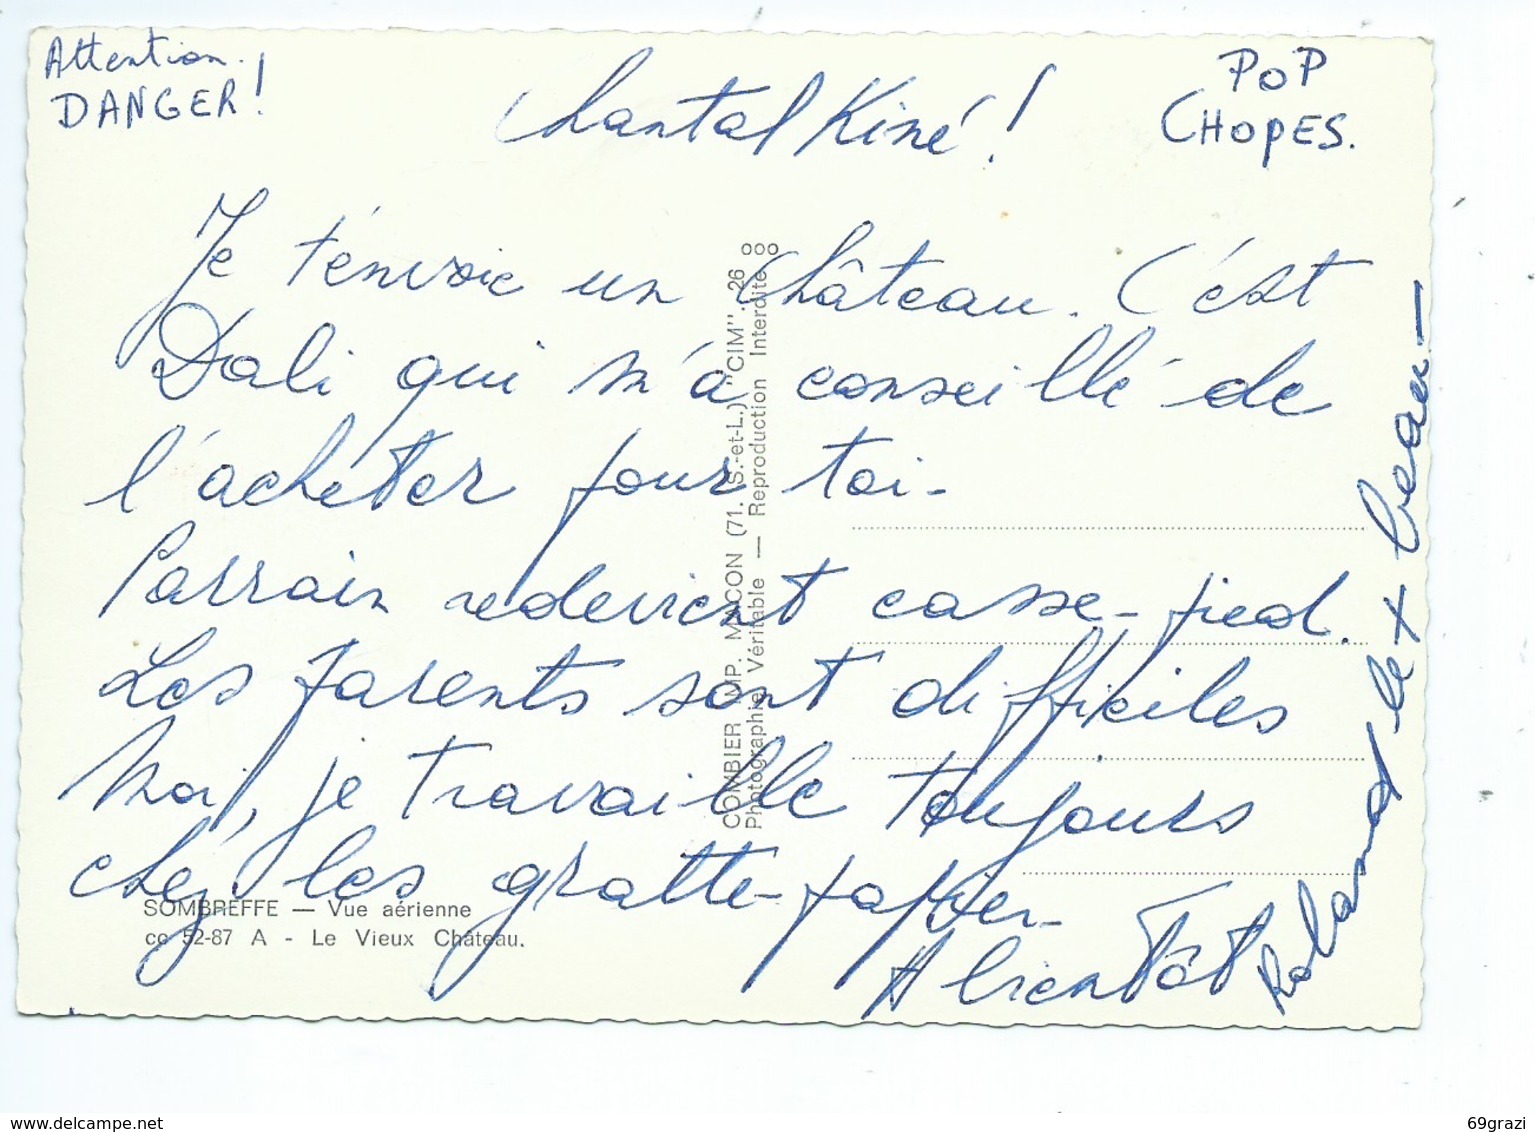 Attention.
DANGER!
Chantal Kiné!
POP
CHOPES.
Je t'envoie un château. C'est
Dali qui m'a conseillé de
l'acheter pour toi.
Parrain redevient casse-pied.
Les parents sont difficiles
Moi, je travaille toujours
chez les gratte-papier.
A bientôt
Roland le + beau
COMBIER IMP. MACON (71. S.-et-L.) "CIM". 26
Photographie Véritable — Reproduction Interdite
SOMBREFFE — Vue aérienne
cc 52-87 A - Le Vieux Château.
www.delcampe.net
69grazi